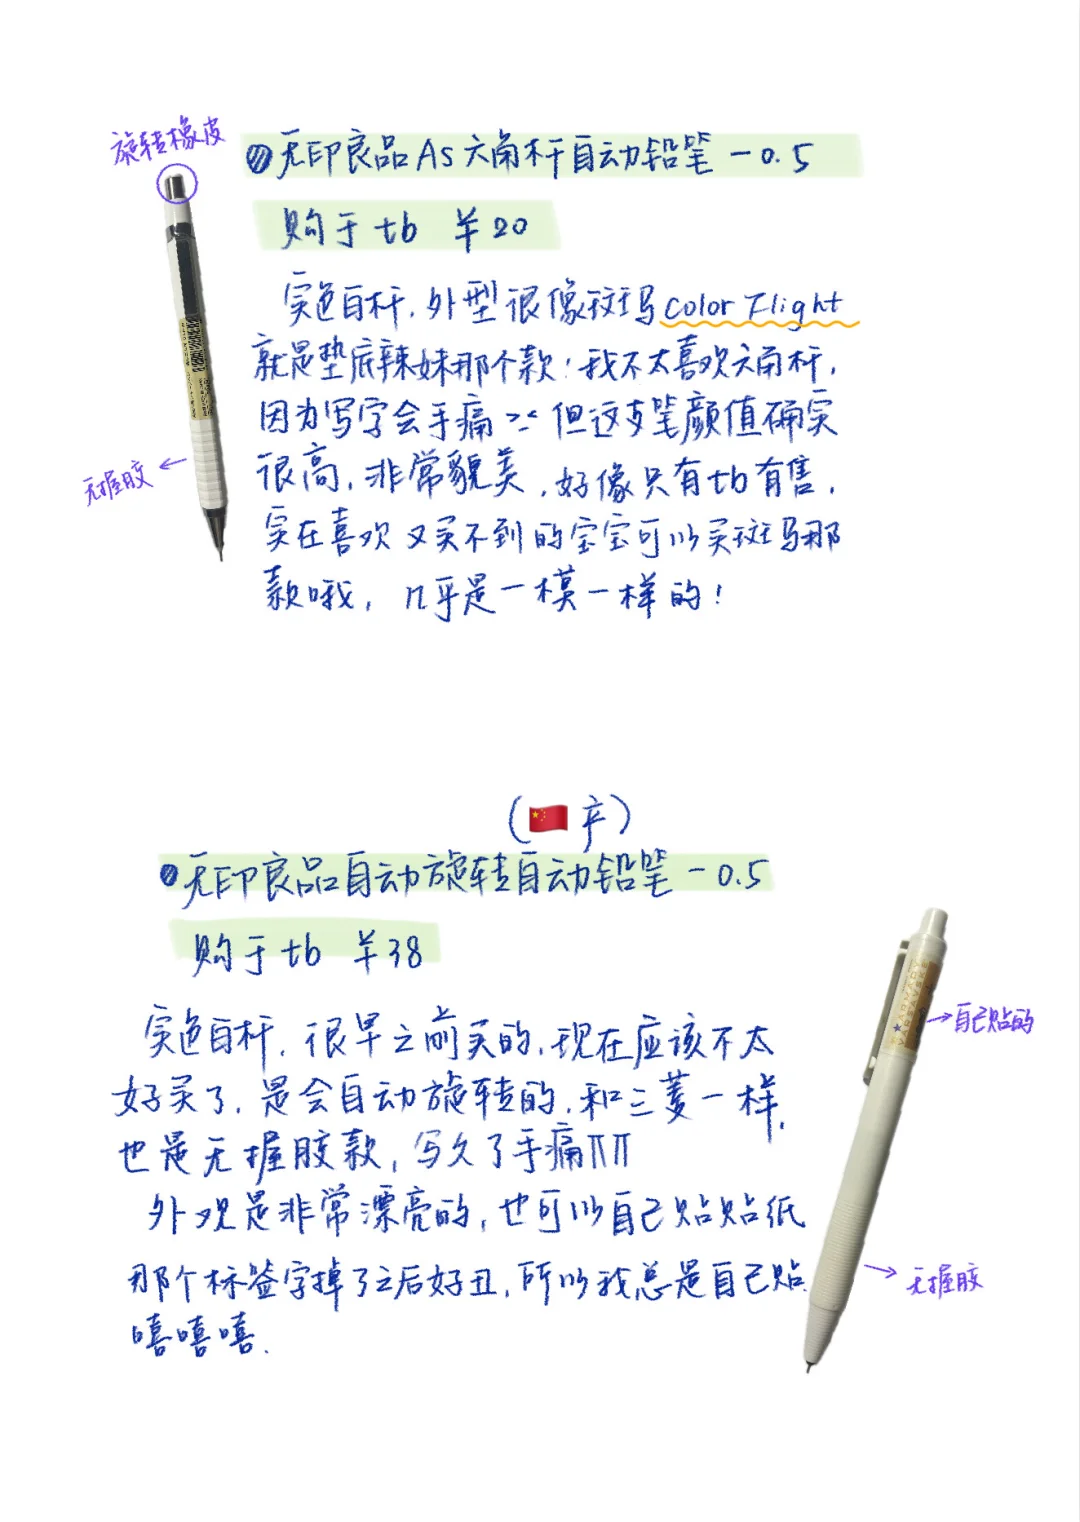 旋转橡皮
无印良品As六角杆自动铅笔-0.5
购于tb ¥20
实色白杆，外型很像斑马Color Flight
就是垫底辣妹那个款！我不太喜欢六角杆，
因为写字会手痛><但这支笔颜值确实
很高，非常貌美，好像只有tb有售，
实在喜欢又买不到的宝宝可以买斑马那
款哦，几乎是一模一样的！
无握胶
(🇨🇳产)
无印良品自动旋转自动铅笔-0.5
购于tb ¥38
实色白杆，很早之前买的，现在应该不太
好买了，是会自动旋转的，和三菱一样，
也是无握胶款，写久了手痛ΠΠ
外观是非常漂亮的，也可以自己贴贴纸
那个标签字掉了之后好丑，所以我总是自己贴
嘻嘻嘻.
自己贴的
无握胶